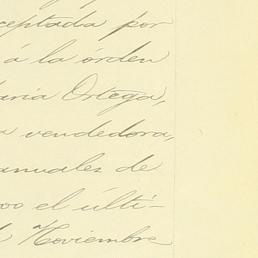 ceptada por
á la órden
aria Ortega,
a vendedora,
anuales de
oo el últi-
Noviembre